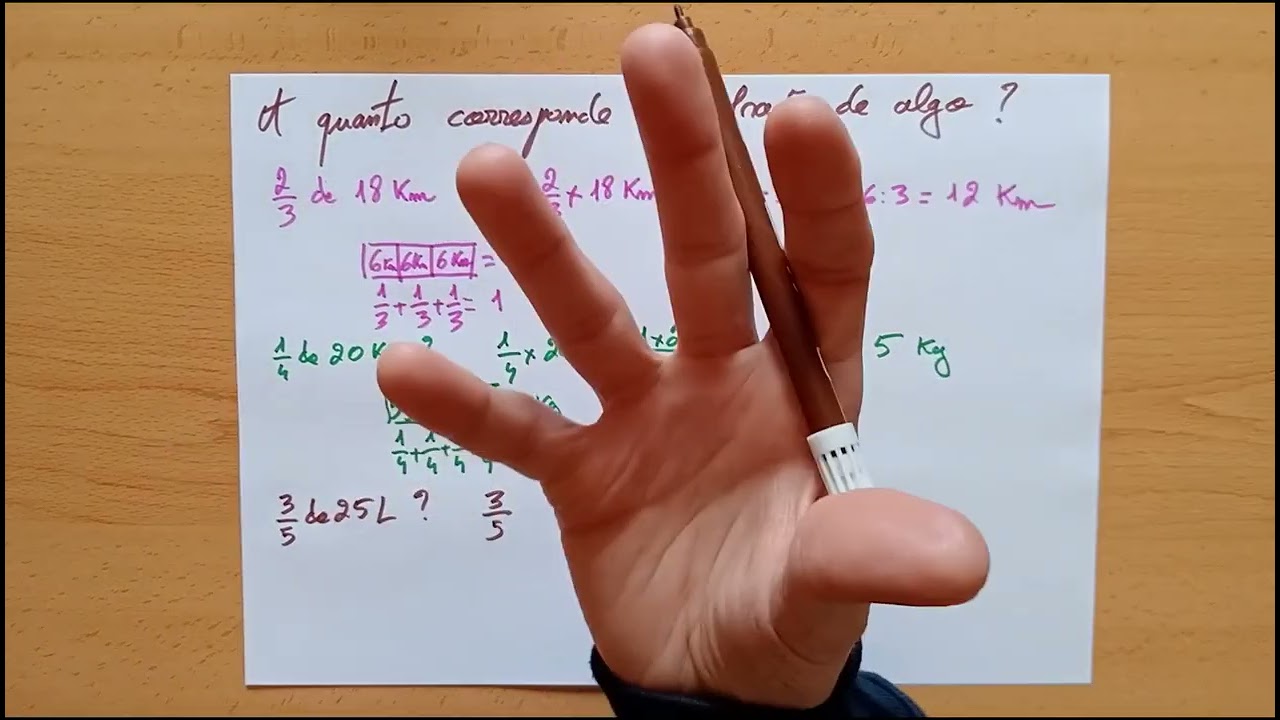 A quanto corresponde de algo ?
2/3 de 18 Km 2/3 × 18 Km 6:3 = 12 Km
6Km 6Km 6Km =
1/3 + 1/3 + 1/3 = 1
1/4 de 20 K ? 1/4 × 2 1×2 5 Kg
1/4 + 1/4 + 1/4 1/4
3/5 de 25L ? 3/5